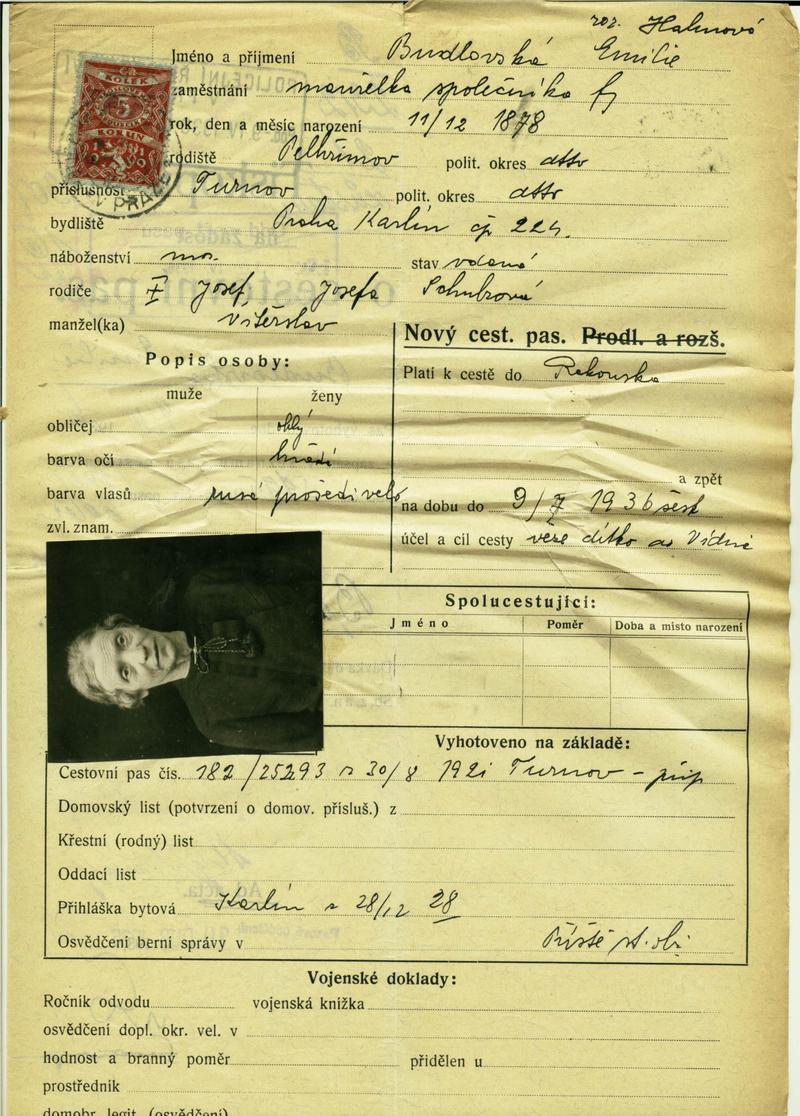 roz. Hahnová
Jméno a příjmení Budlovská Emilie
zaměstnání manželka společníka fy
rok, den a měsíc narození 11/12 1878
rodiště Pelhřimov polit. okres dtto
příslušnost Turnov polit. okres dtto
bydliště Praha Karlín čp 224.
náboženství mos. stav vdaná
rodiče Josef, Josefa
manžel(ka) Vítězslav
Nový cest. pas. Prodl. a rozš.
Popis osoby:
Platí k cestě do Rakouska
muže ženy
obličej oblý
barva očí hnědé
a zpět
barva vlasů rusé prošedivělé
na dobu do 9/7 1936 šest
zvl. znam.
účel a cíl cesty veze dítko do Vídně
KOLEK
5
KORUN
V PRAZE
Spolucestující:
Jméno Poměr Doba a místo narození
Vyhotoveno na základě:
Cestovní pas čís. 182/25293 z 30/8 1921 Turnov
Domovský list (potvrzení o domov. přísluš.) z
Křestní (rodný) list
Oddací list
Přihláška bytová Karlín z 28/12 28
Osvědčení berní správy v Příště st. ob.
Vojenské doklady:
Ročník odvodu vojenská knížka
osvědčení dopl. okr. vel. v
hodnost a branný poměr přidělen u
prostředník
domobr. legit. (osvědčení)